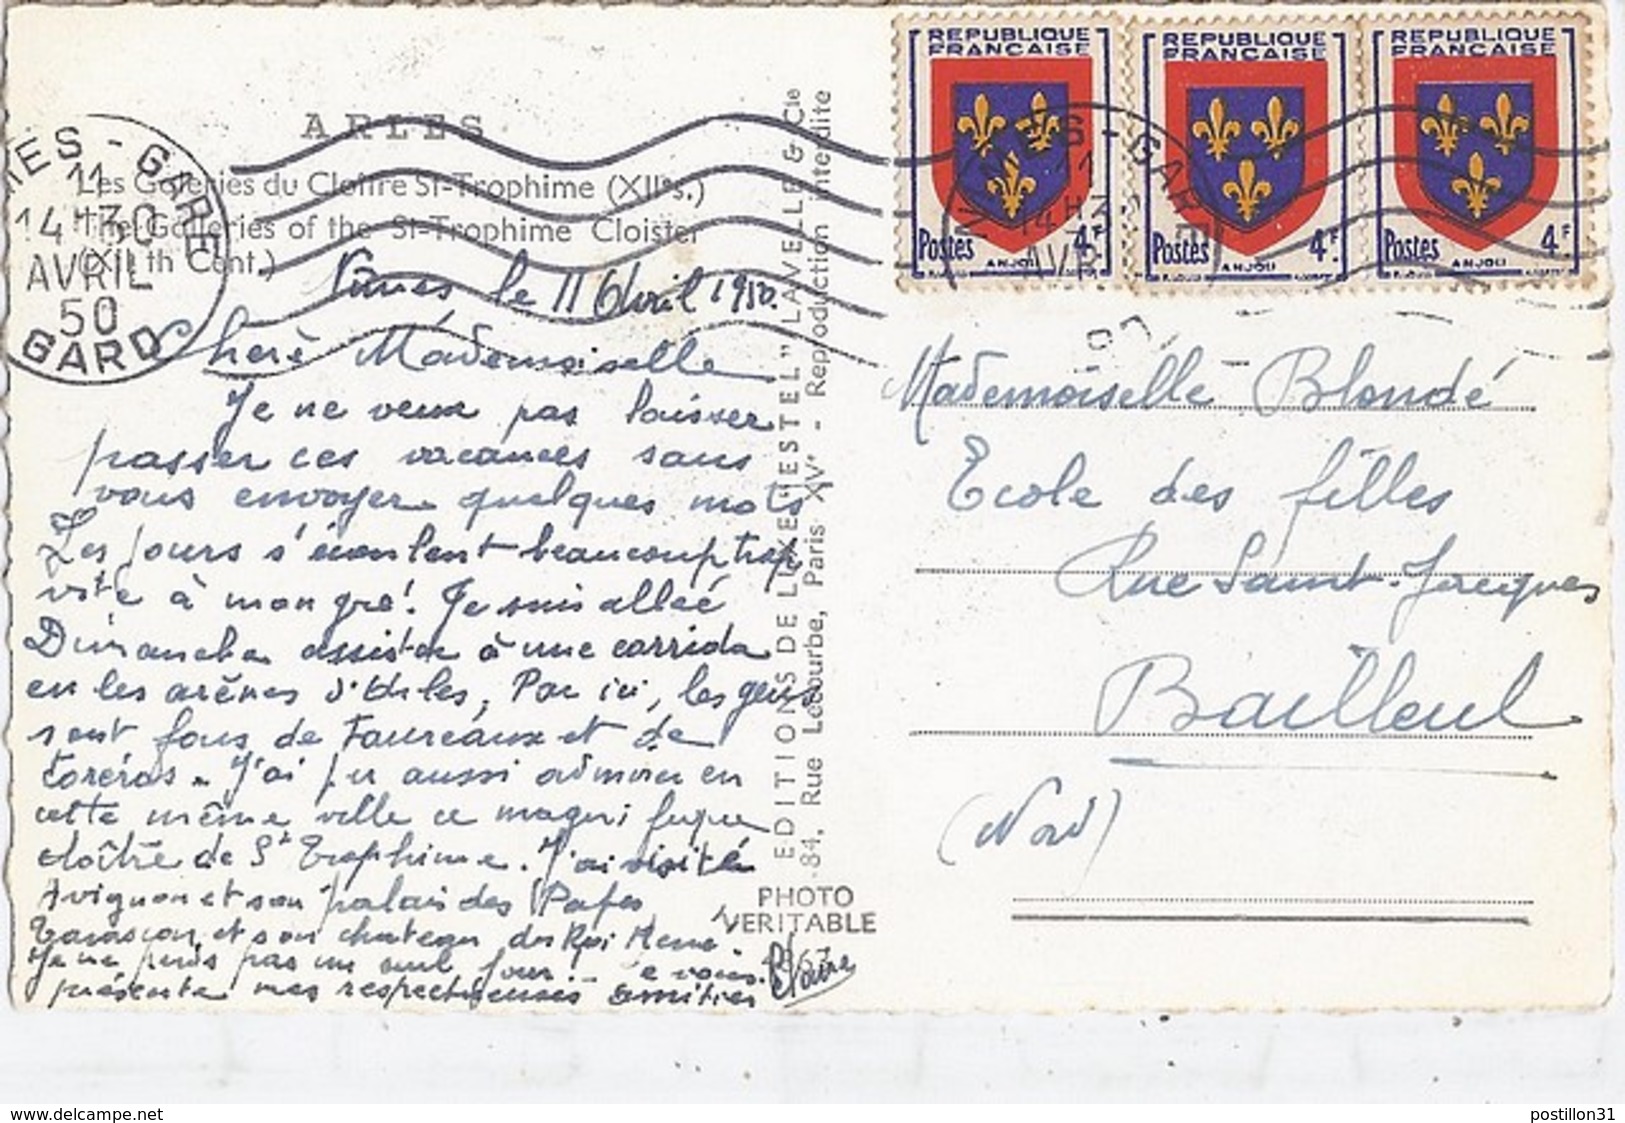 ARLES
Les Galeries du Cloître St-Trophime (XIIe s.)
The Galleries of the St-Trophime Cloister
(XII th Cent.)
NIMES - GARE
11
14 H 30
AVRIL
50
GARD
Nîmes le 11 Avril 1950.
Chère Mademoiselle
Je ne veux pas laisser
passer ces vacances sans
vous envoyer quelques mots
Les jours s'écoulent beaucoup trop
vite à mon gré! Je suis allée
Dimanche assister à une corrida
en les arènes d'Arles, Par ici, les gens
sont fous de Taureaux et de
toréros. J'ai pu aussi admirer en
cette même ville ce magnifique
cloître de St Trophime. J'ai visité
Avignon et son palais des Papes
Tarascon et son chateau du Roi René.
Je ne perds pas un seul jour. Je vous
présente mes respectueuses amitiés
Claire
EDITIONS DE LUXE "ESTEL" LAVELLE & Cie
84, Rue Lecourbe, Paris XVe - Reproduction interdite
PHOTO
VERITABLE
REPUBLIQUE
FRANÇAISE
Postes 4F
ANJOU
REPUBLIQUE
FRANÇAISE
Postes 4F
ANJOU
REPUBLIQUE
FRANÇAISE
Postes 4F
ANJOU
Mademoiselle Blondé
Ecole des filles
Rue Saint-Jacques
Bailleul
(Nord)
www.delcampe.net
postillon31